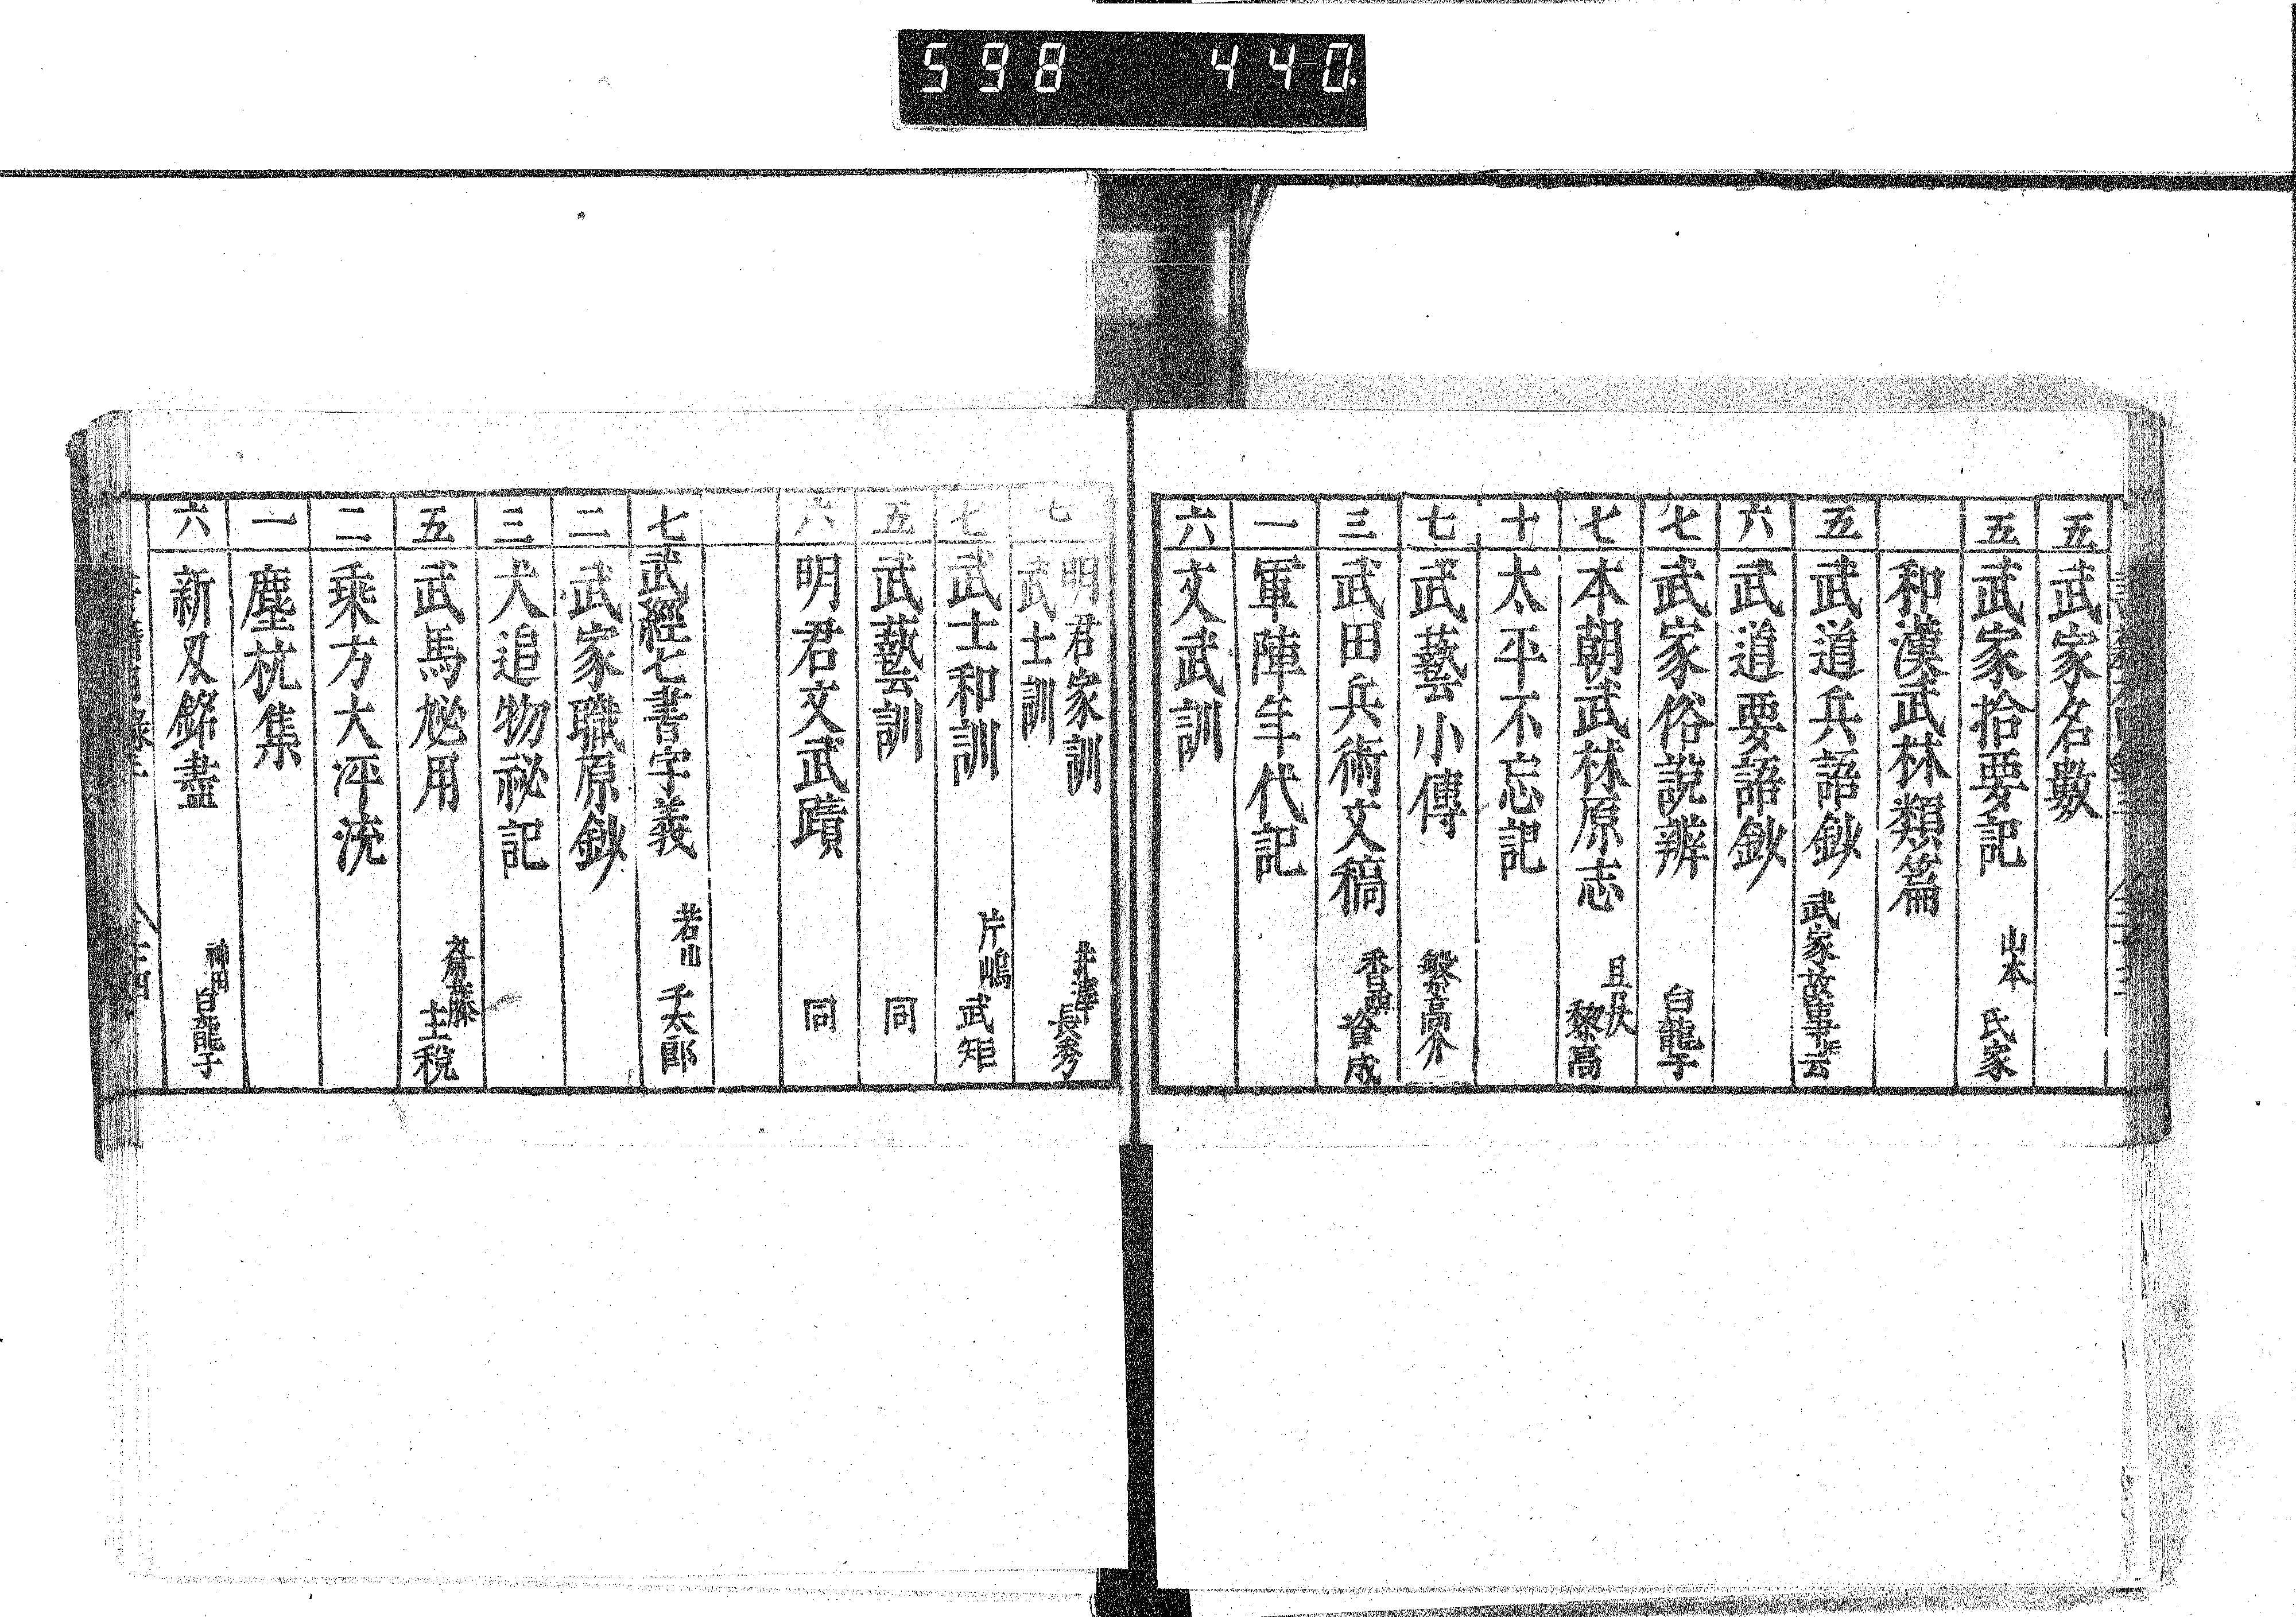 598 440
五 武家名數
五 武家拾要記 山本 氏家
和漢武林類篇
五 武道兵語鈔 武家故事云
六 武道要語鈔
七 武家俗説辨 白龍子
七 本朝武林原志 黎高
十 太平不忘記
七 武藝小傳 繁高
三 武田兵術文稿 香西 資成
一 軍陣年代記
六 文武訓
七 明君家訓 武士訓 井澤 長秀
七 武士和訓 片嶋 武矩
五 武藝訓 同
六 明君文武蹟 同
七 武經七書字義 若山 千太郎
二 武家職原鈔
三 犬追物祕記
五 武馬祕用 斎藤 主税
二 乘方大坪流
一 塵芥集
六 新刄銘盡 神田 白龍子